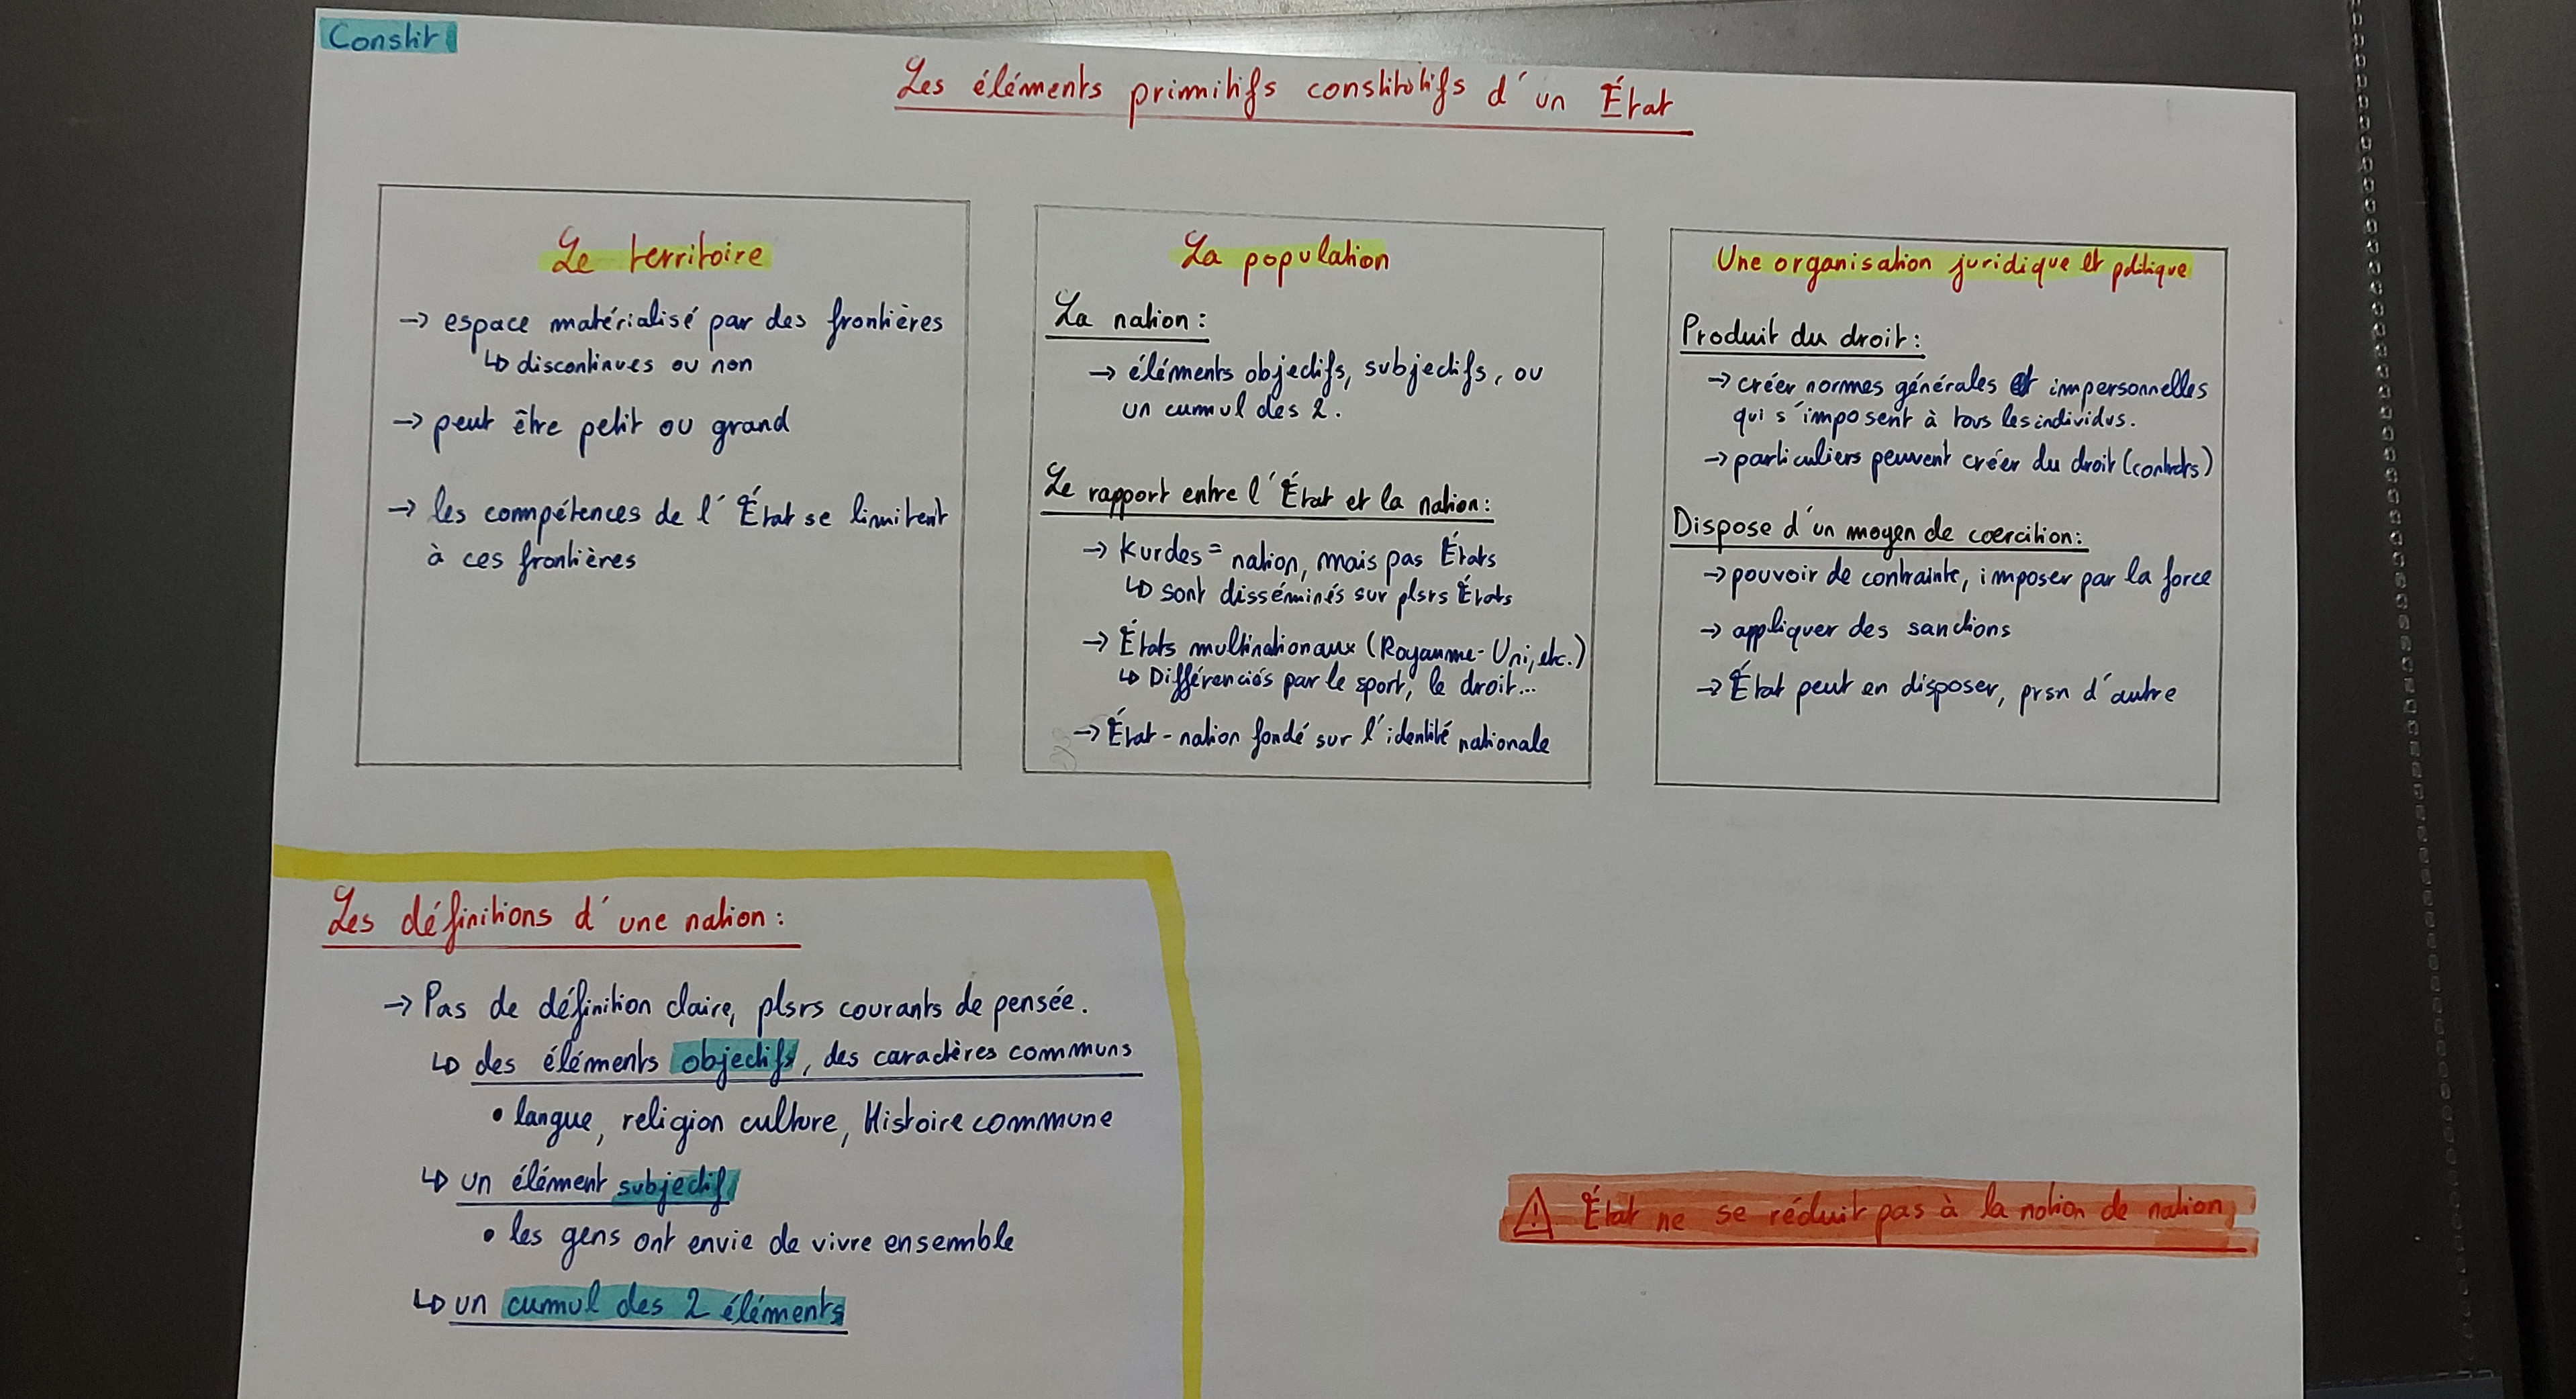 Constit
Les éléments primitifs constitutifs d'un État
Le territoire
→ espace matérialisé par des frontières
↳ discontinues ou non
→ peut être petit ou grand
→ les compétences de l'État se limitent
à ces frontières
La population
La nation :
→ éléments objectifs, subjectifs, ou
un cumul des 2.
Le rapport entre l'État et la nation :
→ Kurdes = nation, mais pas États
↳ sont disséminés sur plsrs États
→ États multinationaux (Royaume-Uni, etc.)
↳ Différenciés par le sport, le droit...
→ État-nation fondé sur l'identité nationale
Une organisation juridique et politique
Produit du droit :
→ créer normes générales et impersonnelles
qui s'imposent à tous les individus.
→ particuliers peuvent créer du droit (contrats)
Dispose d'un moyen de coercition :
→ pouvoir de contrainte, imposer par la force
→ appliquer des sanctions
→ État peut en disposer, prsn d'autre
Les définitions d'une nation :
→ Pas de définition claire, plsrs courants de pensée.
↳ des éléments objectifs, des caractères communs
• langue, religion culture, Histoire commune
↳ un élément subjectif
• les gens ont envie de vivre ensemble
↳ un cumul des 2 éléments
⚠ État ne se réduit pas à la notion de nation